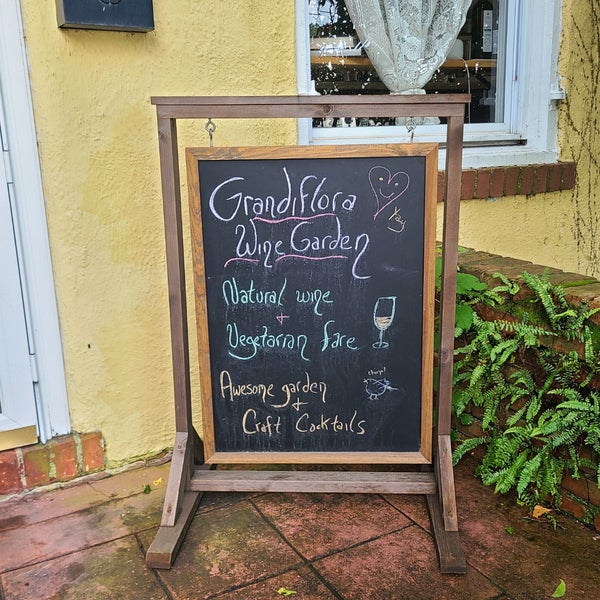 Grandiflora
Wine Garden
Yay
Natural wine
+
Vegetarian fare
chirp!
Awesome garden
+
Craft Cocktails